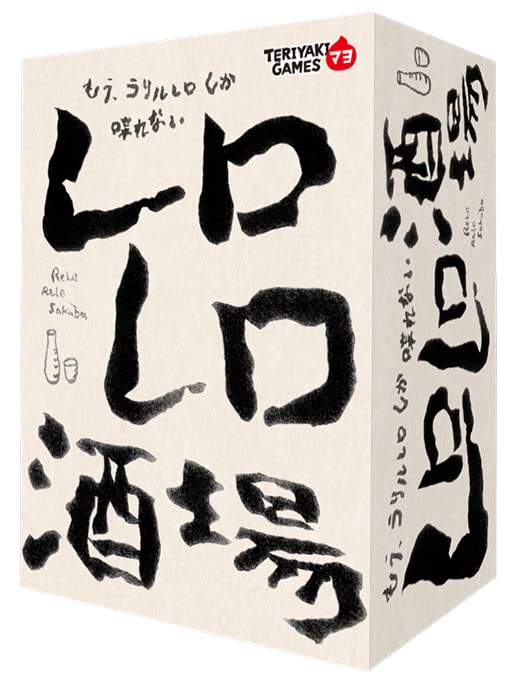 TERIYAKI
GAMES マヨ
もう、ラリルレロしか
喋れない
レロ
レロ
酒場
Relo
Relo
Sakaba
もう、ラリルレロしか喋れない
レロレロ酒場
Relo
Relo
Sakaba